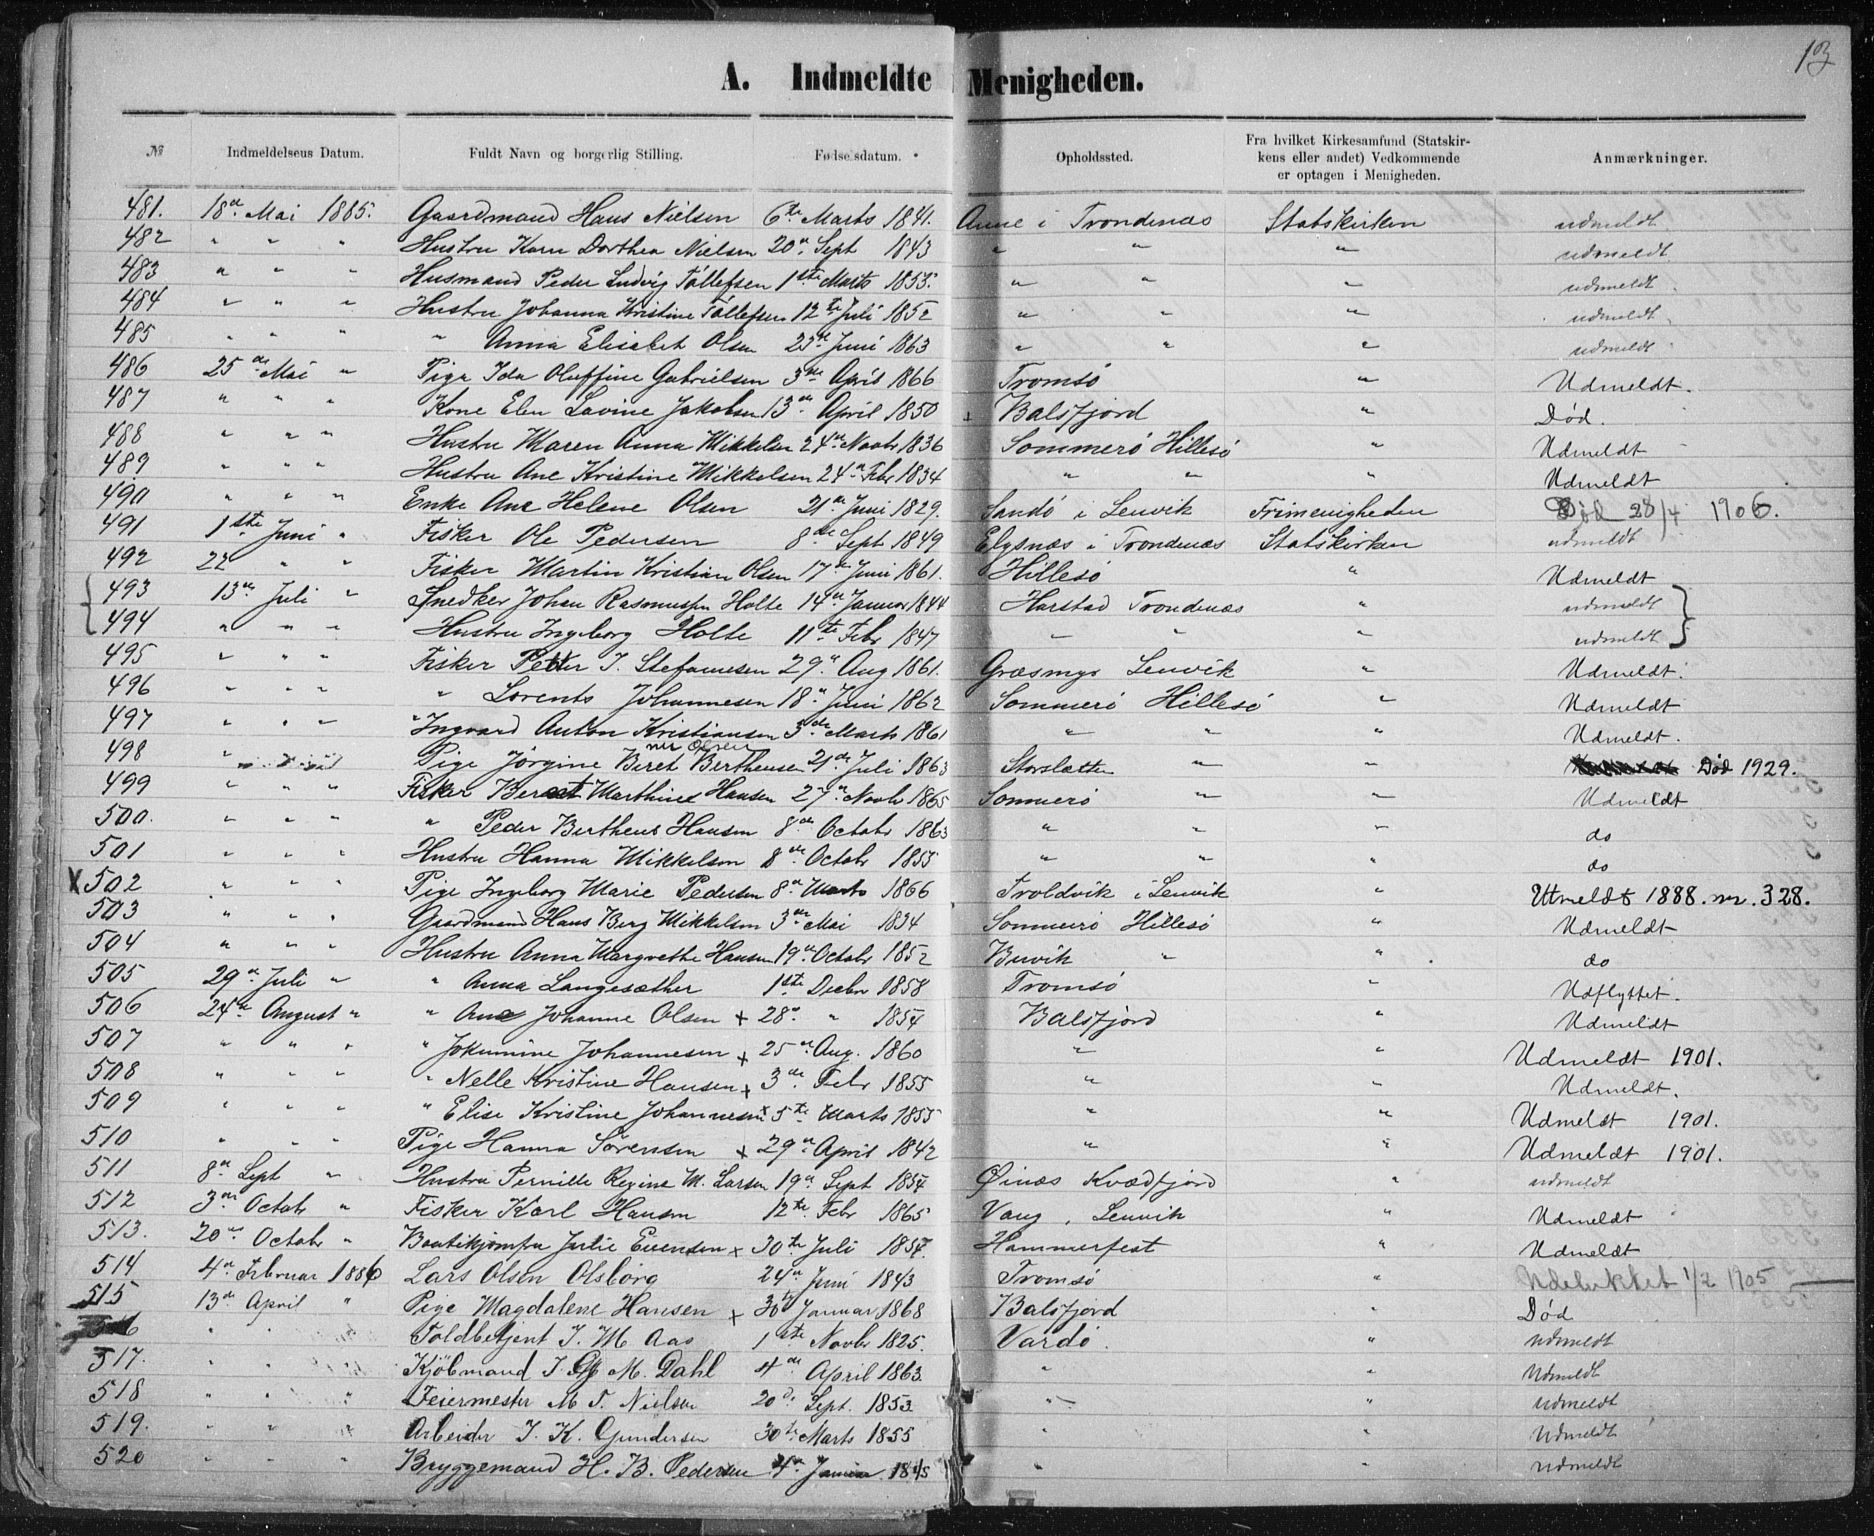 13
A. Indmeldte Menigheden.
№ Indmeldelsens Datum. Fuldt Navn og borgerlig Stilling. Fødselsdatum. Opholdssted. Fra hvilket Kirkesamfund (Statskirkens eller andet) Vedkommende er optagen i Menigheden. Anmærkninger.
481. 18de Mai 1885. Gaardmand Hans Nielsen 6te Marts 1841. i Trondenæs Statskirken udmeldt
482 " " " Hustru Karn Dorthea Nielsen 20de Sept 1843 " " " udmeldt
483 " " " Husmand Peder Ludvig Tøllefsen 1ste Marts 1853. " " " udmeldt
484 " " " Hustru Johanna Kristine Tøllefsen 12te Juli 1852 " " " udmeldt
485 " " " " Anna Elisabet Olsen 23de Juni 1863 " " " udmeldt
486 25de Mai " Pige Ida Oluffine Gabrielsen 3die April 1866 Tromsø " Udmeldt.
487 " " " Kone Elen Lavine Jakobsen 13de April 1850 + Balsfjord " Død.
488 " " " Hustru Karen Anna Mikkelsen 24de Novbr 1836 Sommerø Hillesø " Udmeldt
489 " " " Hustru Ane Kristine Mikkelsen 24de Febr 1834 " " " Udmeldt
490 " " " Enke Ane Helene Olsen 21de Juni 1829. Sandø i Lenvik Frimenigheden Død 28/4 1906.
491 1ste Juni " Fisker Ole Pedersen 8de Sept 1849 Elgsnæs i Trondenæs Statskirken udmeldt
492 22 " " Fisker Martin Kristian Olsen 17de Juni 1861. Hillesø " Udmeldt
493 13de Juli " Snedker Johan Rasmussen Holte 14de Januar 1844 Harstad Trondenæs " udmeldt
494 " " " Hustru Ingeborg Holte 11te Febr 1847 " " " udmeldt
495 " " " Fisker Petter J. Stefanesen 29de Aug 1861. Græsmyr Lenvik " Udmeldt.
496 " " " " Lorents Johannesen 18de Juni 1862 Sommerø Hillesø " Udmeldt
497 " " " " Ingvard Anton Kristiansen 3die Marts 1861 " " " Udmeldt.
nu Olsen
498 " Pige Jørgine Beret Berthensen 21de Juli 1863 Storslætten " " Død 1929.
499 " " " Fisker Berent Marthines Hansen 27de Novbr 1865 Sommerø " " Udmeldt
500. " " " " Peder Bertheus Hansen 8de Octobr 1863 " " " do
501 " " " Hustru Hanna Mikkelsen 8de Octobr 1855 " " " do
X 502 " " " Pige Ingeborg Marie Pedersen 8de Marts 1866 Troldvik i Lenvik " Utmeldt 1888. nr. 328.
503 " " " Gaardmand Hans Berg Mikkelsen 3die Mai 1834 Sommerø Hillesø " Udmeldt
504 " " " Hustru Anna Margrethe Hansen 19de Octobr 1852 Buvik " " do
505 29de Juli " " Anna Langesæther 1ste Decbr 1858 Tromsø " Udflyttet.
506 24de August " " Ane Johanne Olsen + 28de " 1854 Balsfjord " Udmeldt
507 " " " " Jokumine Johannesen + 25de Aug. 1860 " " Udmeldt 1901.
508 " " " " Nelle Kristine Hansen + 3die Febr 1855 " " Udmeldt.
509 " " " " Elise Kristine Johannesen + 5te Marts 1855 " " Udmeldt 1901.
510 " " " Pige Hanna Sørensen + 29de April 1842 " " Udmeldt 1901.
511 8de Sept " Hustru Pernille Regine M. Larsen 19de Sept 1854 Øinæs Kvædfjord " udmeldt
512 3die Octobr " Fisker Karl Hansen 12te Febr 1865 Vang, Lenvik " Udmeldt
513. 20de Octobr " Boutikjomfru Julie Evensen + 30te Juli 1854. Hammerfest " Udmeldt
514 4de Februar 1886 Lars Olsen Olsborg 24de Juni 1843 Tromsø " Udelukket 1/2 1905
515 13de April " Pige Magdalene Hansen + 30te Januar 1868 Balsfjord " Død
516 " " Toldbetjent J. M Aas 1ste Novbr 1825. Vardø " udmeldt
517. " " Kjøbmand J. M. Dahl 4de April 1863 " " Udmeldt
518 " " " Feiermester M T. Nielsen 20de Sept. 1853 " " udmeldt
519. " " " Arbeider J. K. Gundersen 30te Marts 1855 " " Udmeldt
520 " " " Bryggemand H. B. Pedersen 4de Januar 1845 " " udmeldt